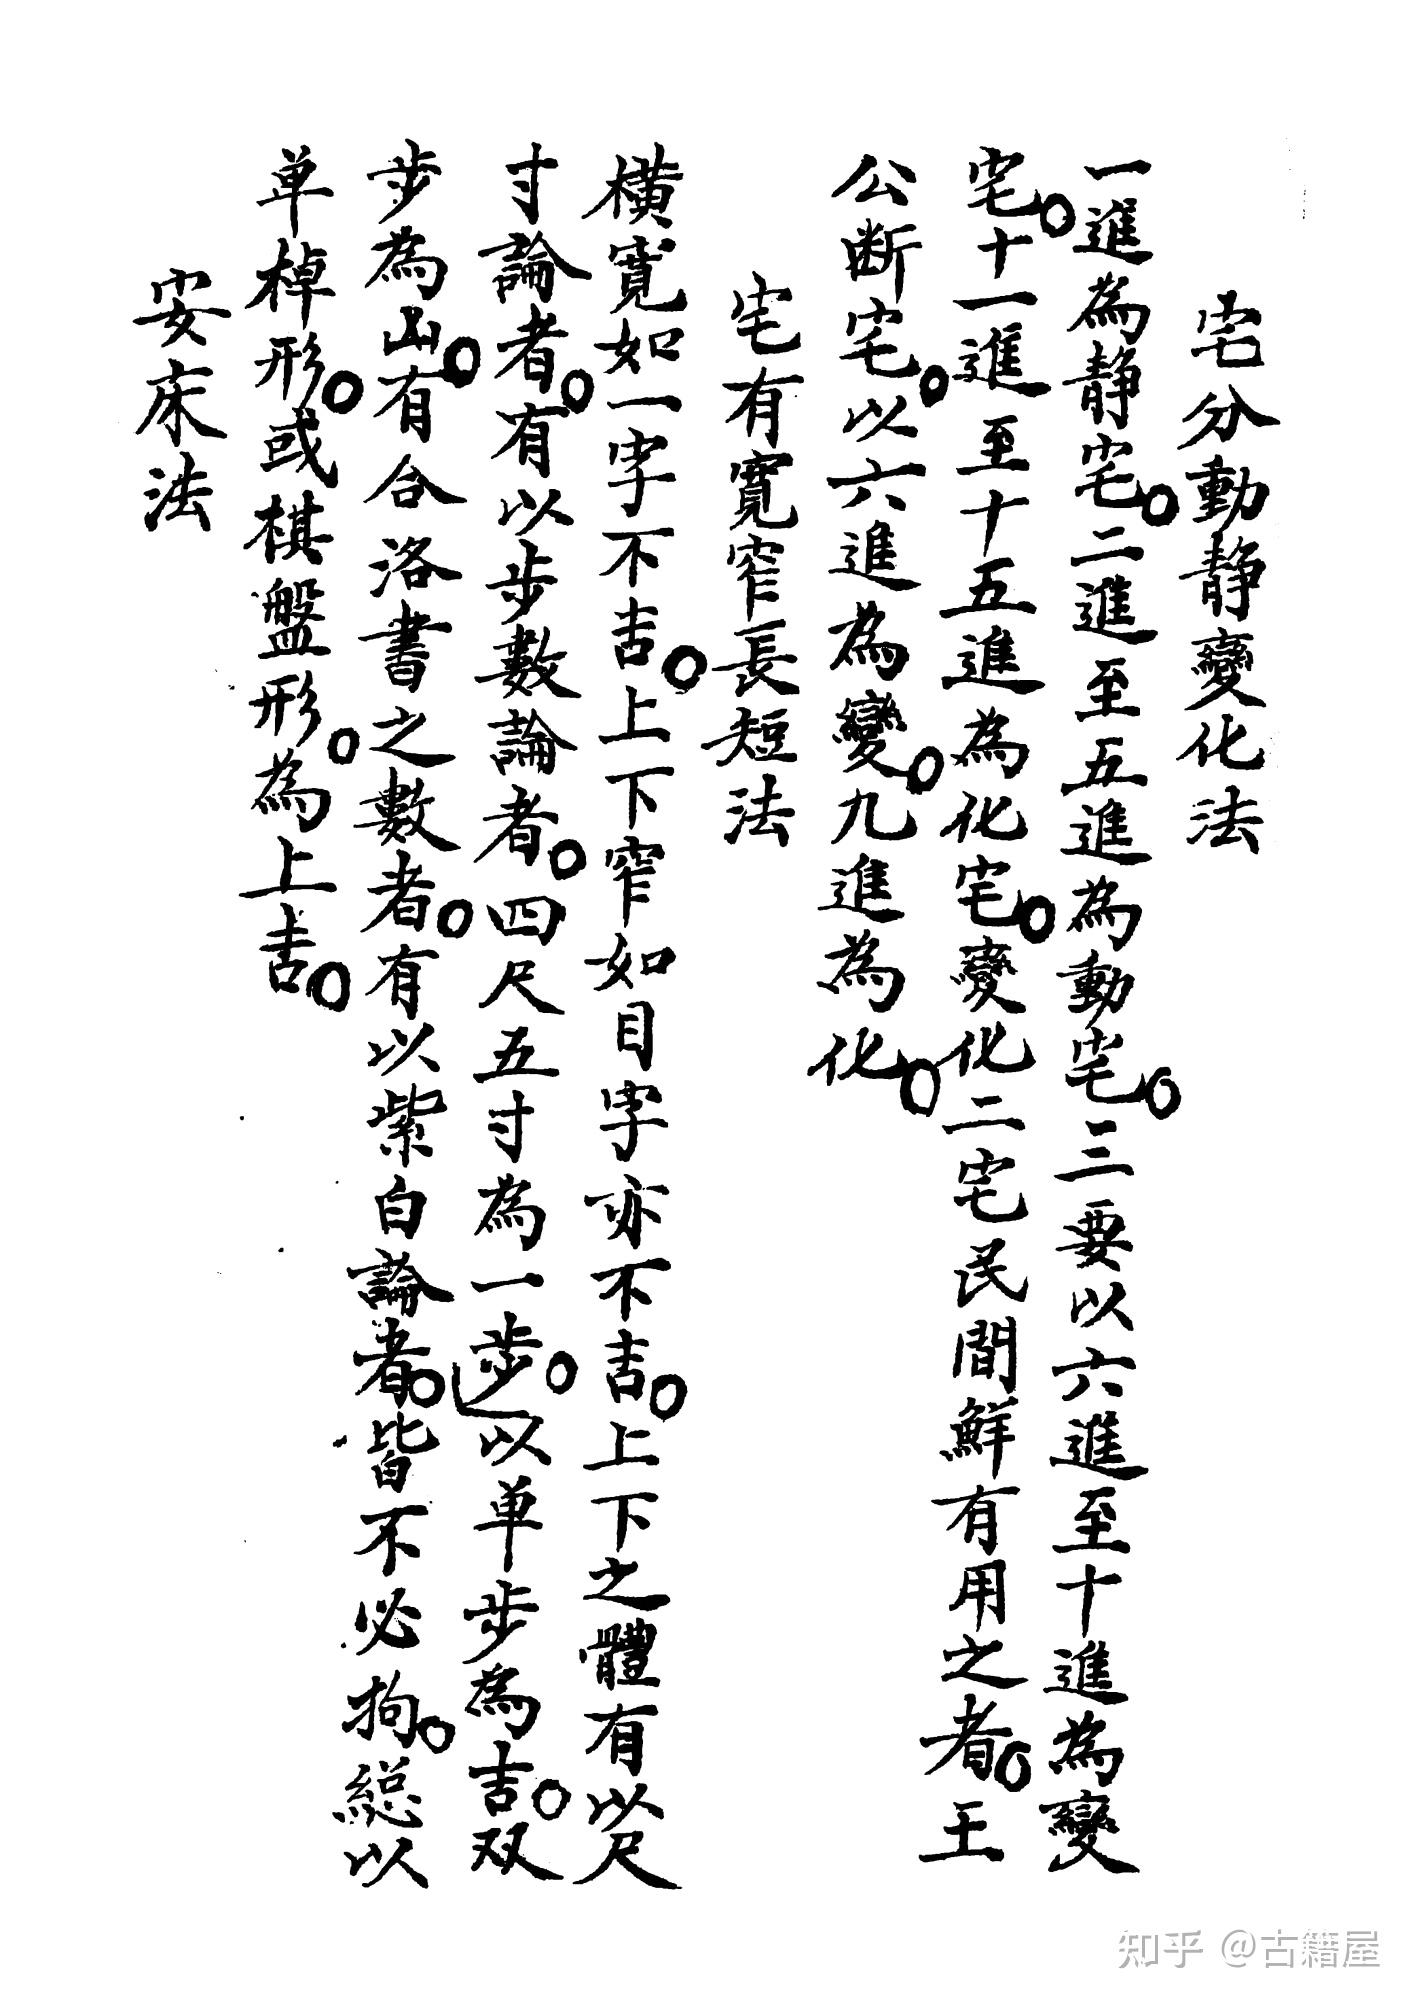 宅分動靜變化法
一進為靜宅○二進至五進為動宅○三要以六進至十進為變
宅○十一進至十五進為化宅○變化二宅民間鮮有用之者○王
公断宅○以六進為變○九進為化○
宅有寬窄長短法
橫寬如一字不吉○上下窄如目字亦不吉○上下之體有以尺
寸論者○有以步數論者○四尺五寸為一步○以单步為吉○双
步為凶○有合洛書之數者○有以紫白論者○皆不必拘○総以
单棹形○或棋盤形○為上吉○
安床法
知乎 @古籍屋